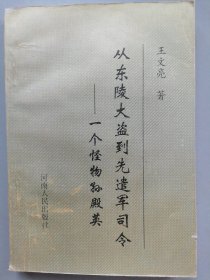 王文亮 著
从东陵大盗到先遣军司令
——一个怪物孙殿英
河南人民出版社